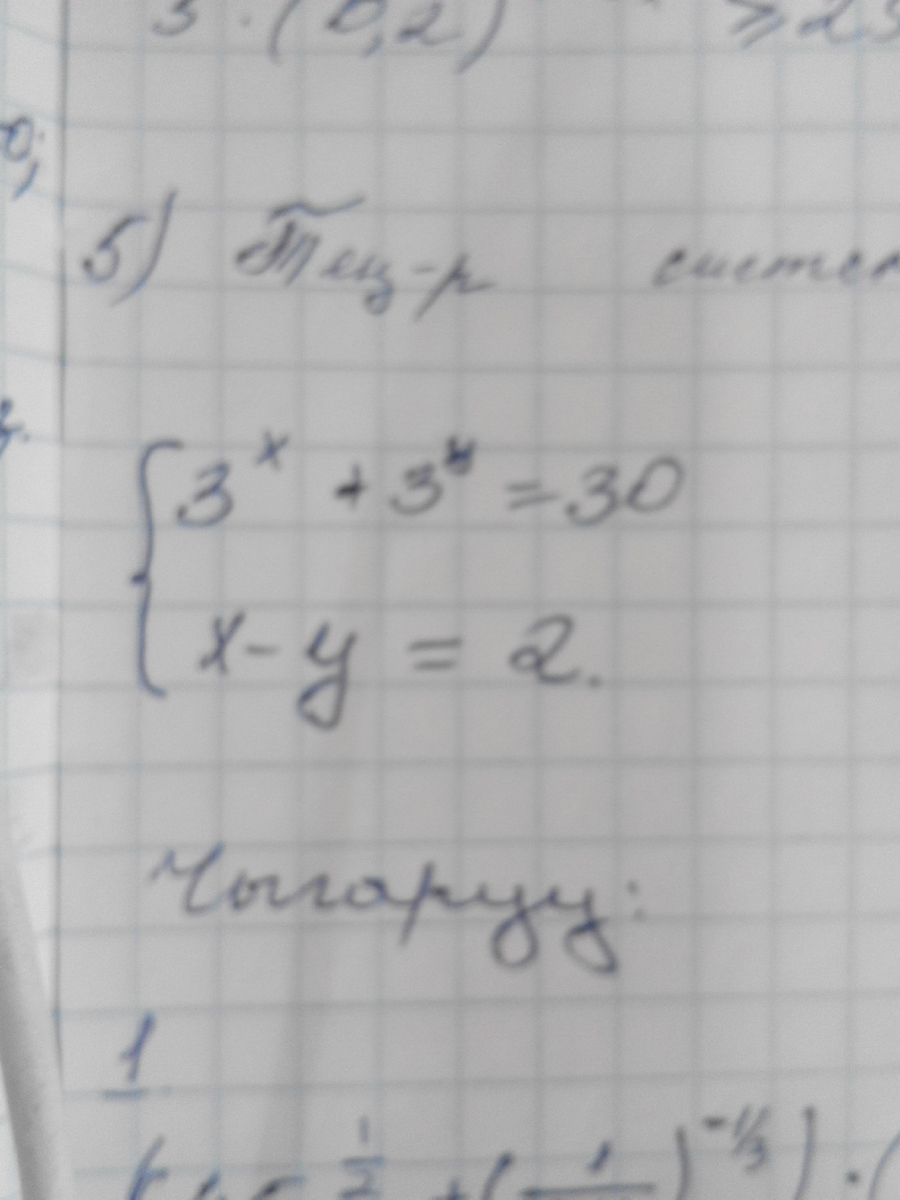 3 · (0,2) ≥ 25
0;
5) Тең-р систем
{ 3^x + 3^y = 30
x - y = 2.
Чыгаруу:
1
1/2 + ( 1 )^-1/3) · (